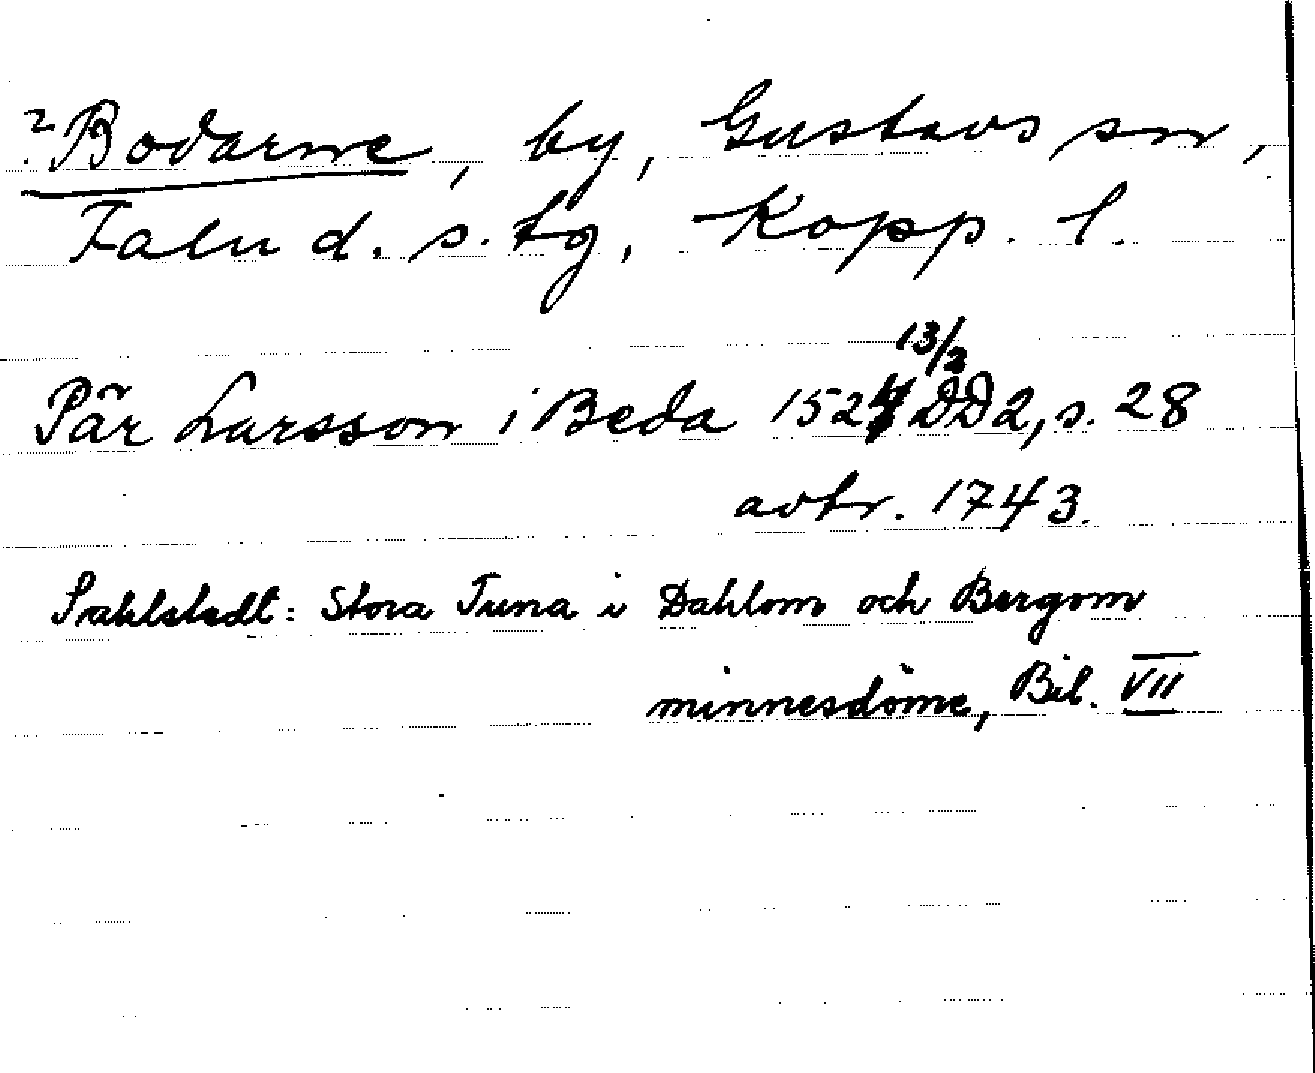 ? Bodarne, by, Gustavs sn,
Falu d. s. tg, Kopp. l.
13/2
Pär Larsson i Beda 1524 DD2, s. 28
avtr. 1743.
Sahlstedt: Stora Tuna i Dahlom och Bergom
minnesdöme, Bil. VII